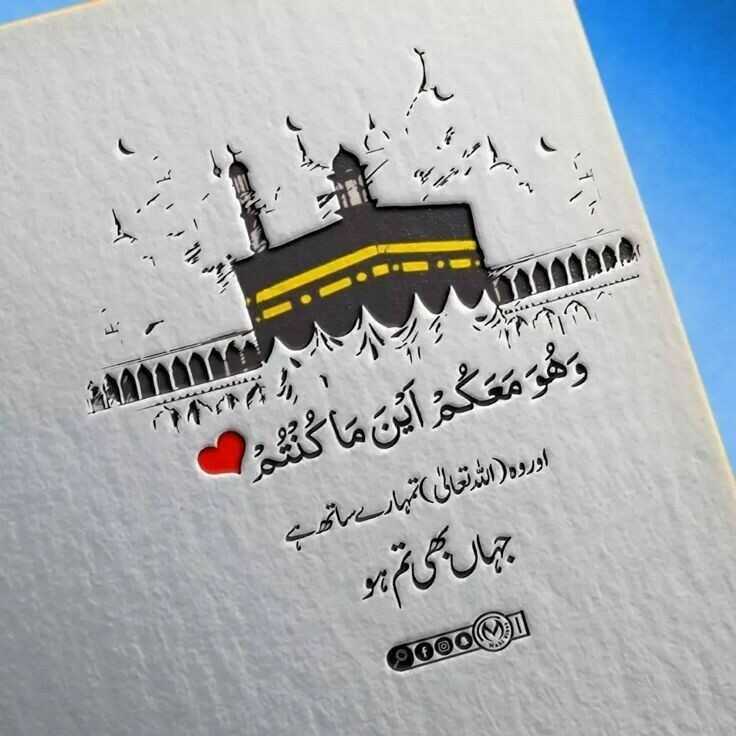 وَهُوَ مَعَكُمْ اَيْنَ مَا كُنْتُمْ
اور وہ (اللہ تعالیٰ) تمہارے ساتھ ہے
جہاں بھی تم ہو